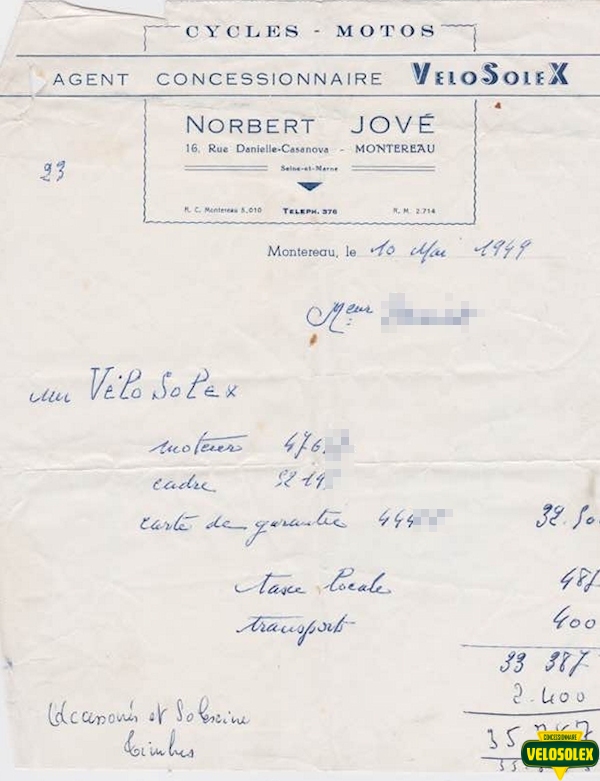 CYCLES - MOTOS
AGENT CONCESSIONNAIRE VELOSOLEX
NORBERT JOVÉ
16, Rue Danielle-Casanova - MONTEREAU
Seine-et-Marne
R. C. Montereau 5.010 TELEPH. 376 R. M. 2.714
23
Montereau, le 10 Mai 1949
Meur
un VéLoSoLeX
moteur 476
cadre 5219
carte de garantie 444 32.50
taxe locale 487
transports 400
33 387
2.400
et Solexine
Timbres
35
CONCESSIONNAIRE
VELOSOLEX